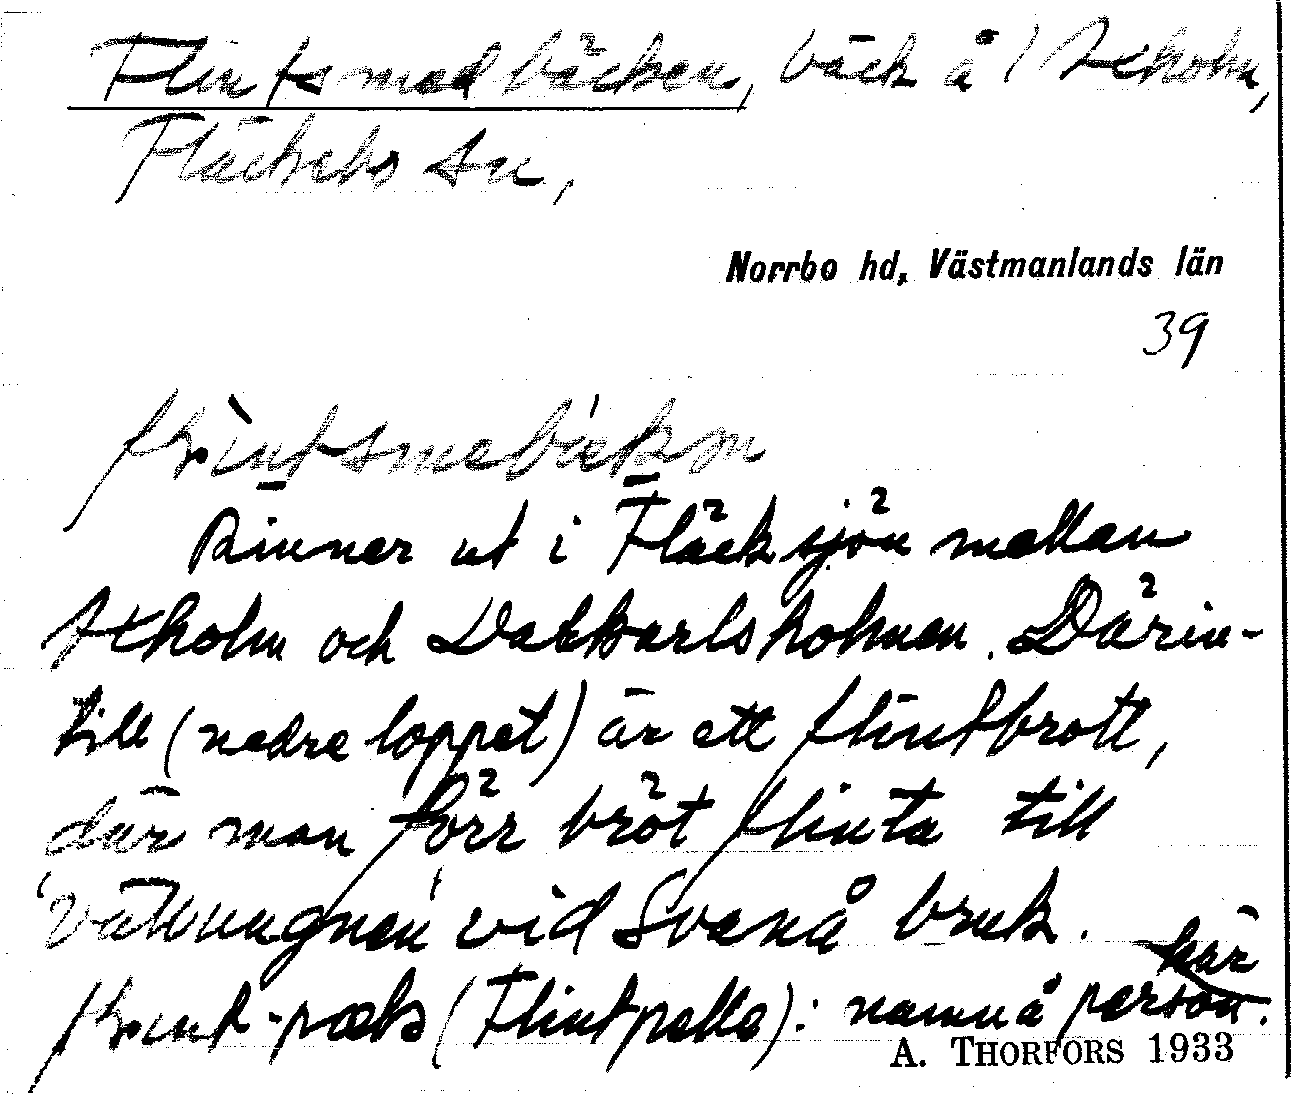 Flintsmedbäcken, bäck å Axholm,
Fläckebo sn,
Norrbo hd, Västmanlands län
39
Rinner ut i Fläcksjön mellan
Axholm och Dalkarlsholmen. Därin-
till (nedre loppet) är ett flintbrott,
där man förr bröt flinta till
'vällungnen' vid Svanå bruk.
(Flintpelle): namn å person här.
A. THORFORS 1933